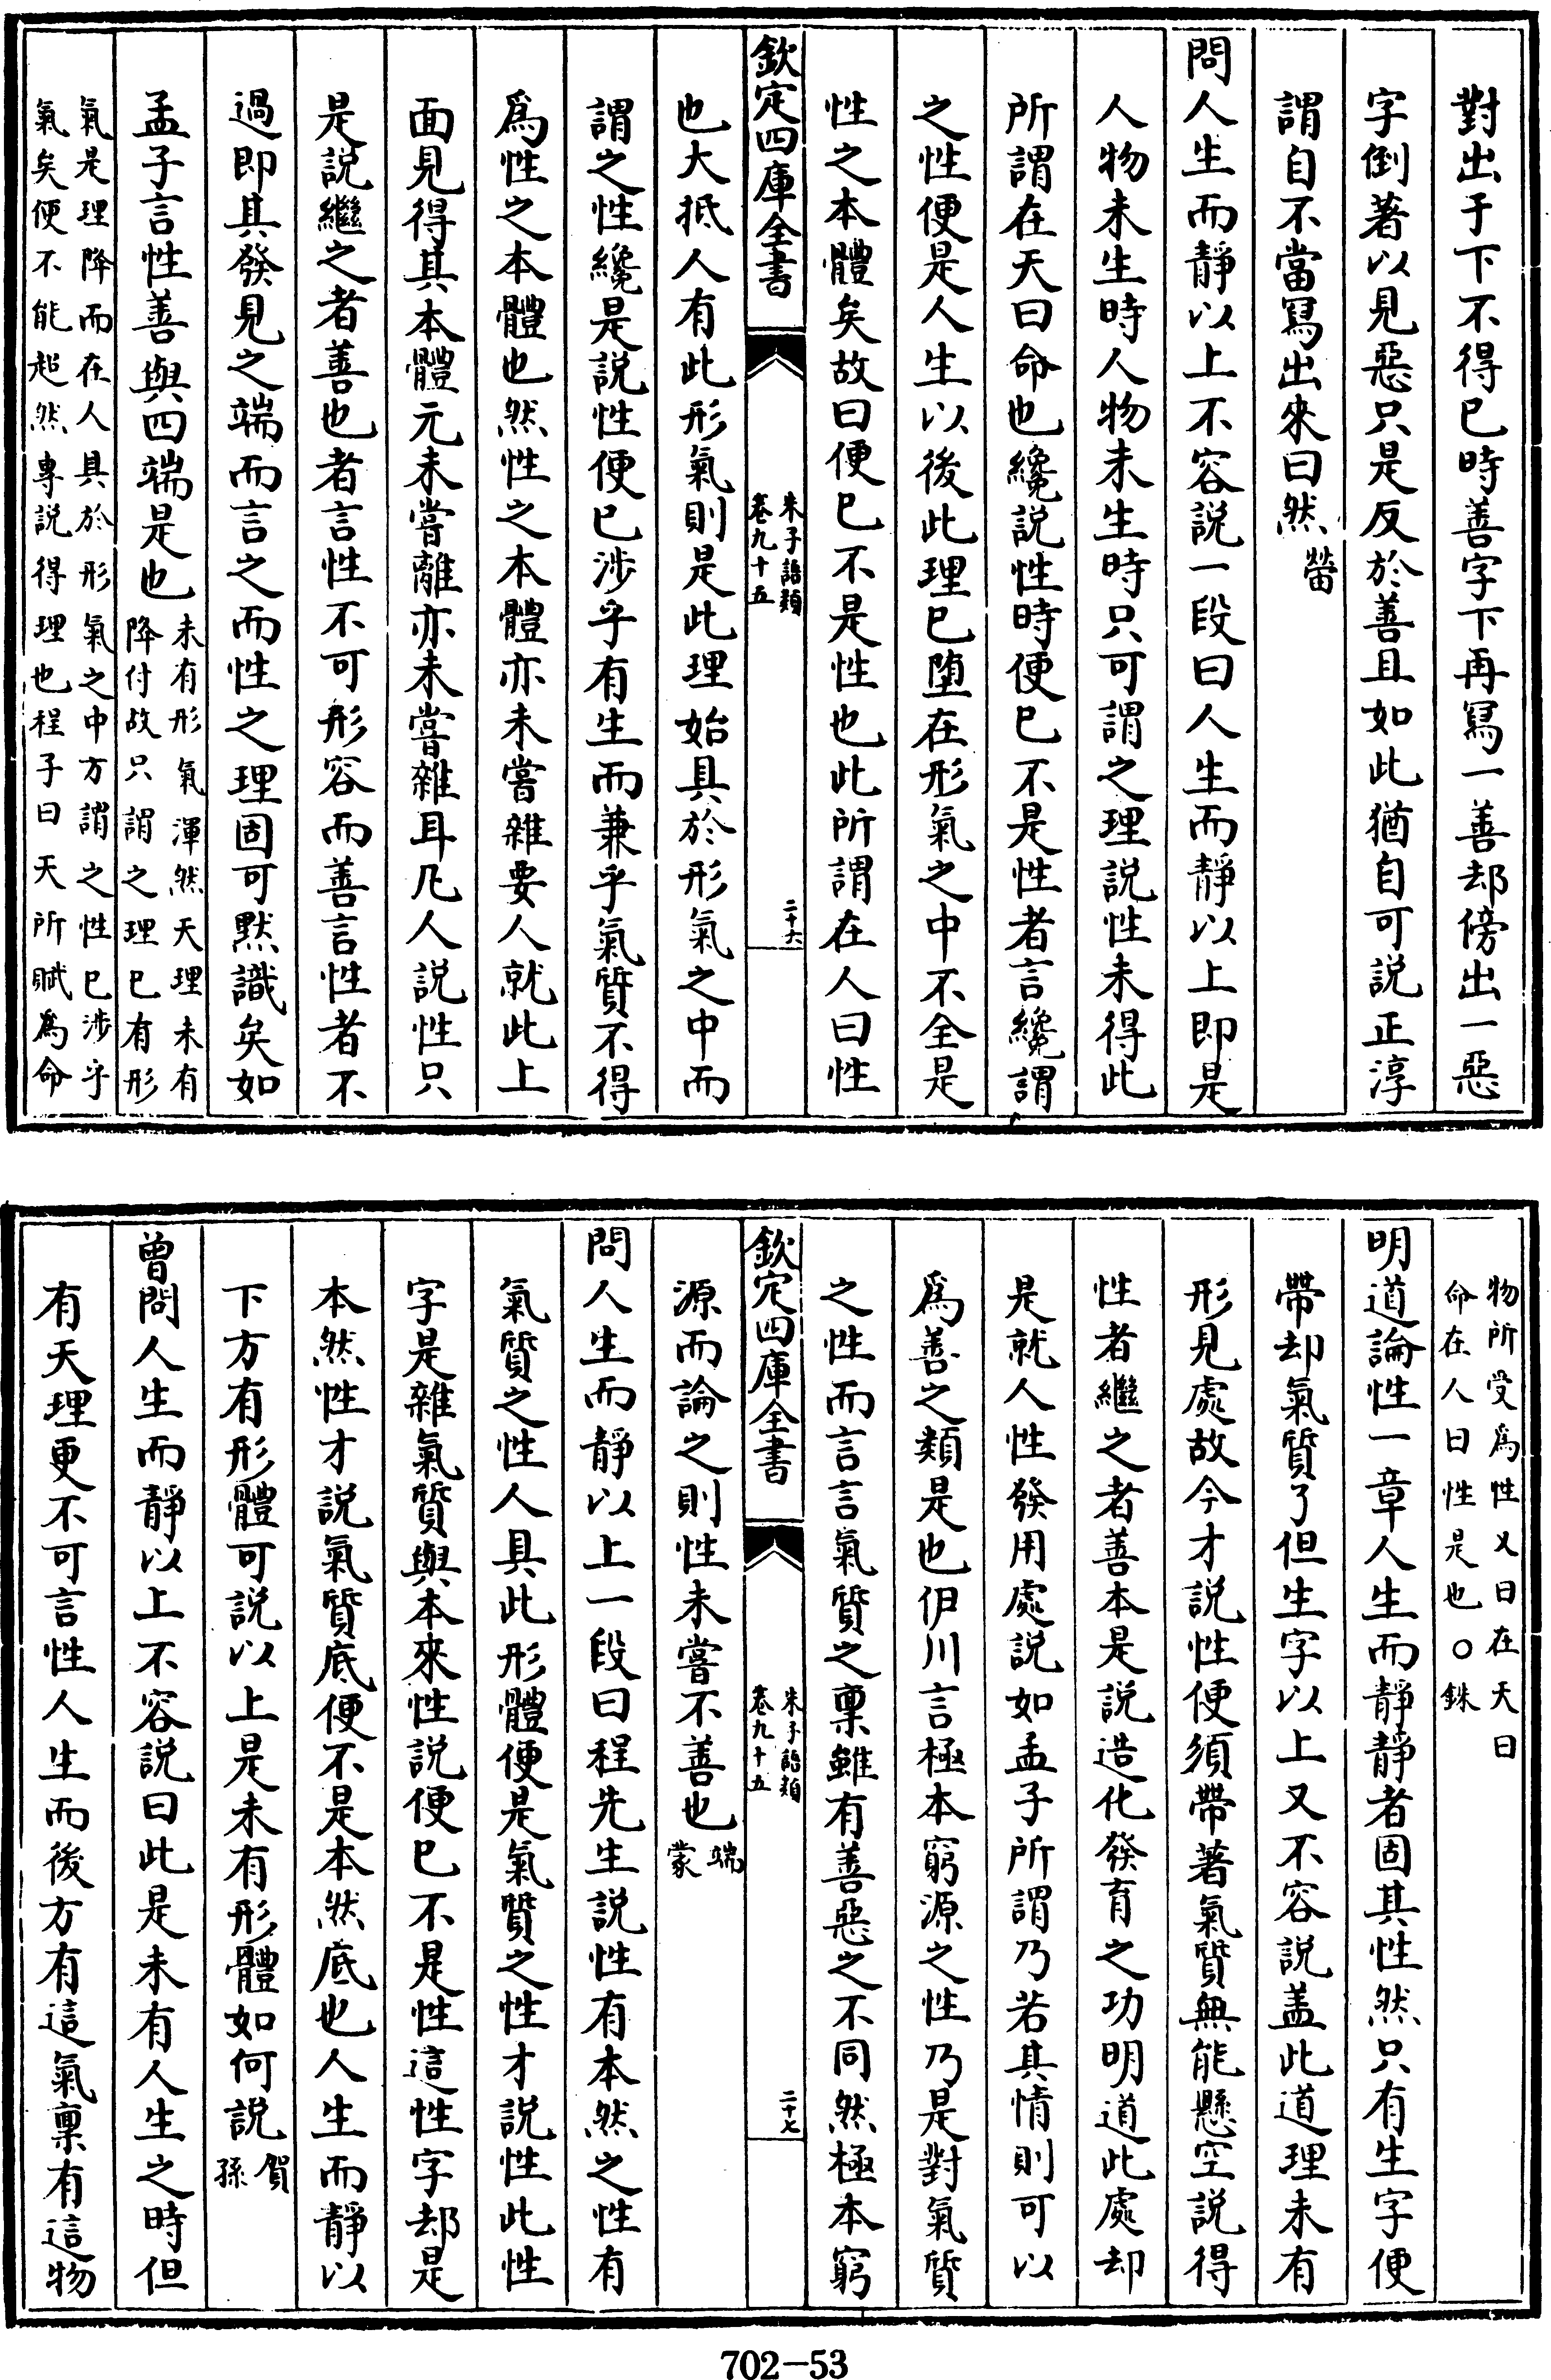 對出于下不得已時善字下再寫一善却傍出一惡
字倒著以見惡只是反於善且如此猶自可說正淳
謂自不當寫出來曰然㽦
問人生而靜以上不容說一段曰人生而靜以上即是
人物未生時人物未生時只可謂之理說性未得此
所謂在天曰命也纔說性時便已不是性者言纔謂
之性便是人生以後此理已墮在形氣之中不全是
性之本體矣故曰便已不是性也此所謂在人曰性
欽定四庫全書
朱子語類
卷九十五
二十六
也大抵人有此形氣則是此理始具於形氣之中而
謂之性纔是說性便已涉乎有生而兼乎氣質不得
爲性之本體也然性之本體亦未嘗雜要人就此上
面見得其本體元未嘗離亦未嘗雜耳凡人說性只
是說繼之者善也者言性不可形容而善言性者不
過即其發見之端而言之而性之理固可黙識矣如
孟子言性善與四端是也
未有形氣渾然天理未有
降付故只謂之理已有形
氣是理降而在人具於形氣之中方謂之性已涉乎
氣矣便不能超然專說得理也程子曰天所賦爲命
物所受爲性又曰在天曰
命在人曰性是也○銖
明道論性一章人生而靜靜者固其性然只有生字便
帶却氣質了但生字以上又不容說盖此道理未有
形見處故今才說性便須帶著氣質無能懸空說得
性者繼之者善本是說造化發育之功明道此處却
是就人性發用處說如孟子所謂乃若其情則可以
爲善之類是也伊川言極本窮源之性乃是對氣質
之性而言言氣質之稟雖有善惡之不同然極本窮
欽定四庫全書
朱子語類
卷九十五
二十七
源而論之則性未嘗不善也
端
蒙
問人生而靜以上一段曰程先生說性有本然之性有
氣質之性人具此形體便是氣質之性才說性此性
字是雜氣質與本來性說便已不是性這性字却是
本然性才說氣質底便不是本然底也人生而靜以
下方有形體可說以上是未有形體如何說
賀
孫
曾問人生而靜以上不容說曰此是未有人生之時但
有天理更不可言性人生而後方有這氣稟有這物
702-53